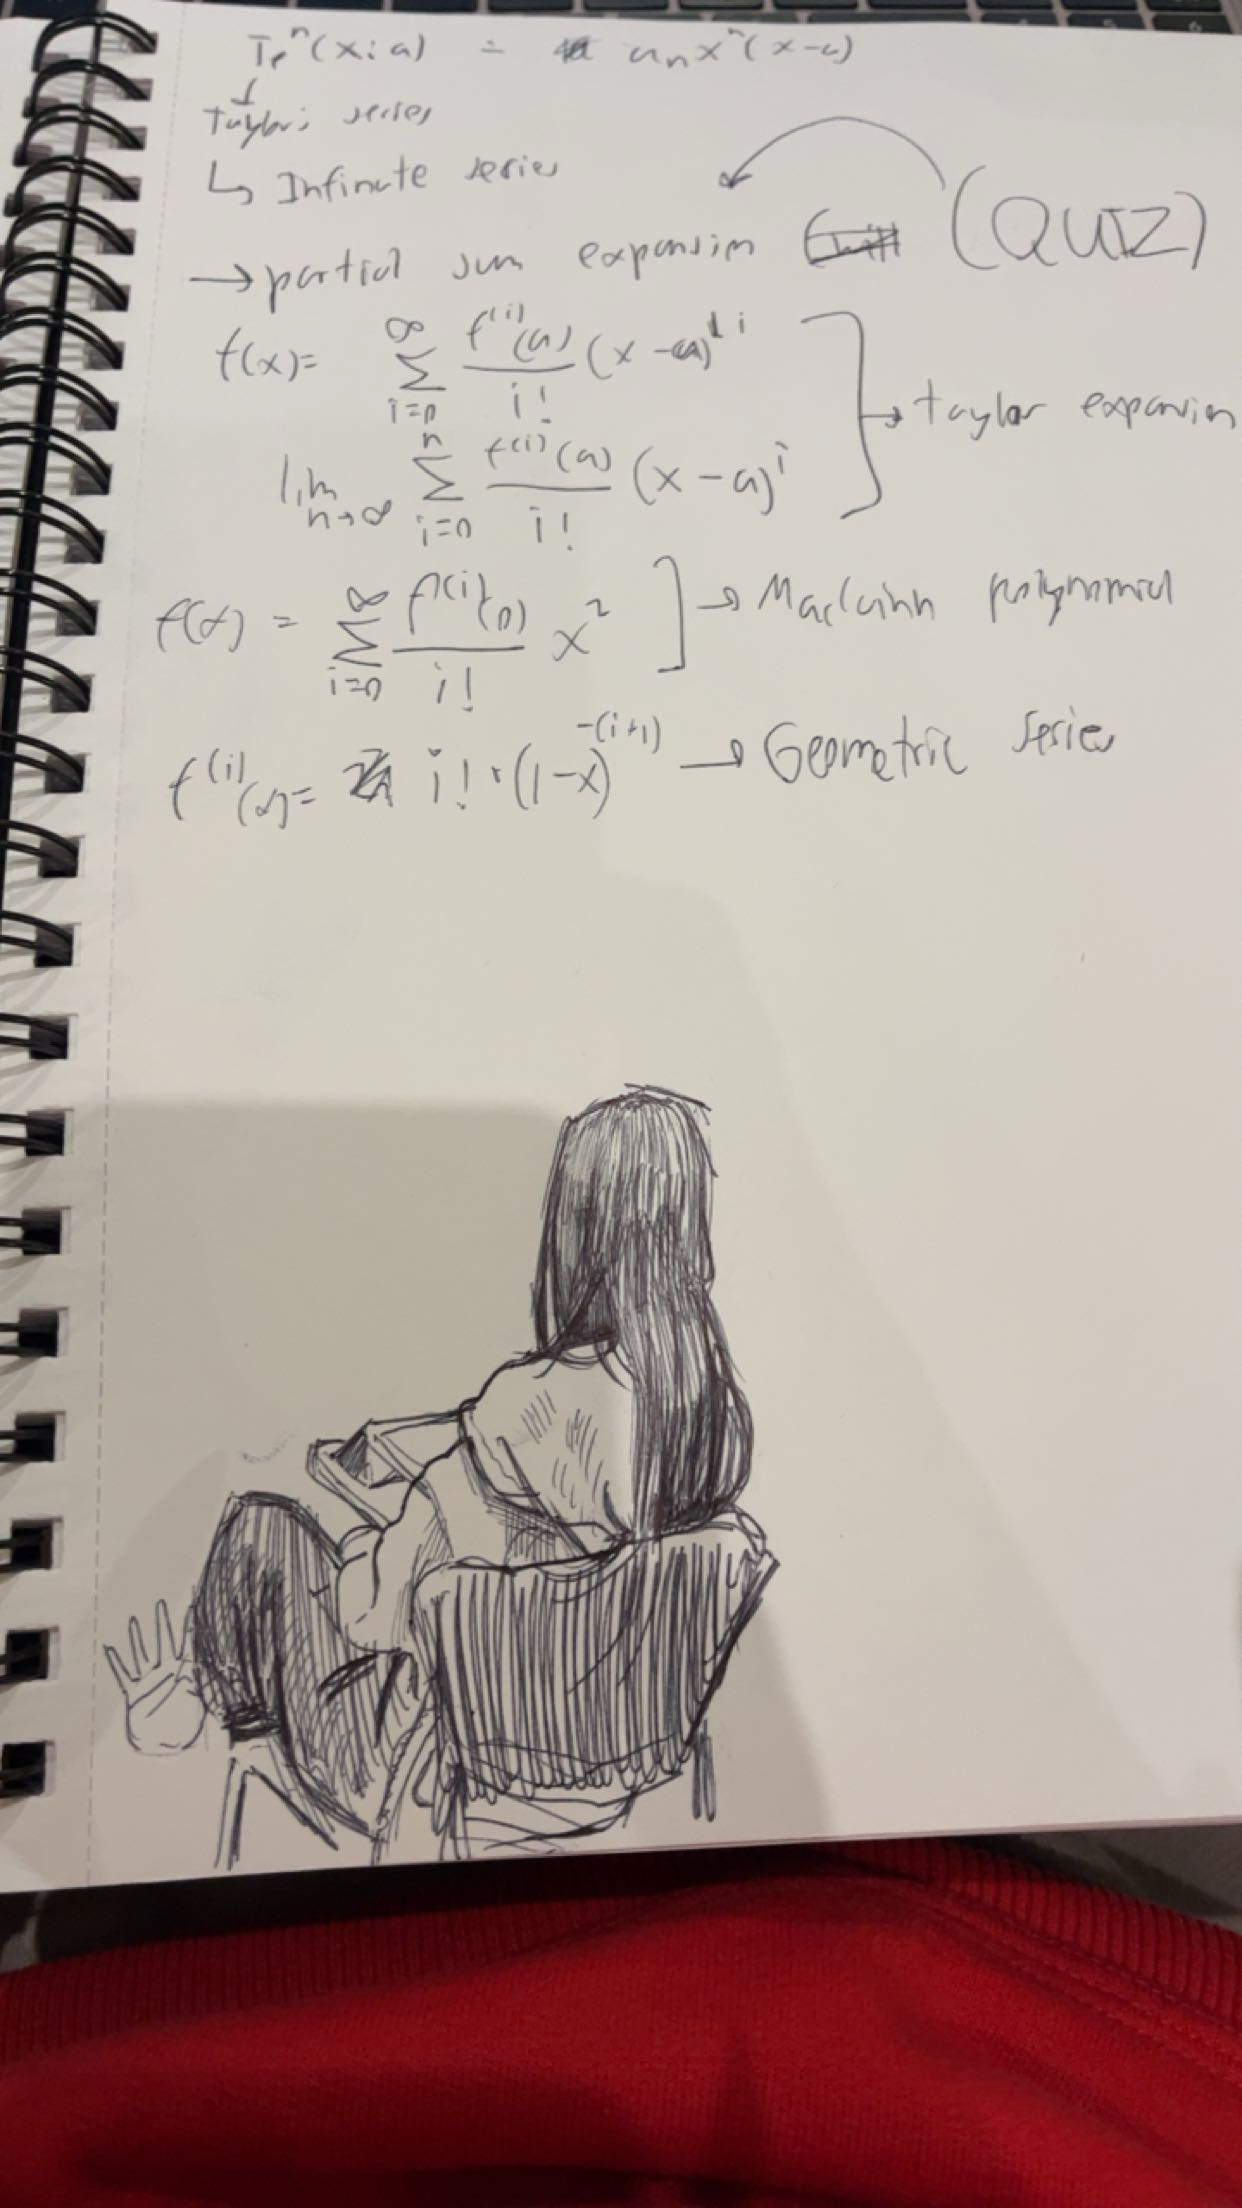 Tₑⁿ(x:a) = aₙxⁿ(x-a)
Taylor's series
↳ Infinite series
→ partial sum expansion (QUIZ)
f(x)= ∑_{i=0}^{∞} f⁽ⁱ⁾(a)/i! (x-a)ⁱ
lim_{n→∞} ∑_{i=0}^{n} f⁽ⁱ⁾(a)/i! (x-a)ⁱ ] → taylor expansion
f(x) = ∑_{i=0}^{∞} f⁽ⁱ⁾(0)/i! x² ] → Maclaurin polynomial
f⁽ⁱ⁾(x)= i!·(1-x)^{-(i+1)} → Geometric series